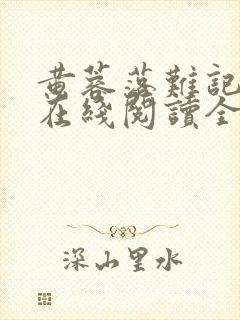 黄蓉落難記
在綫閱讀全
深山里水